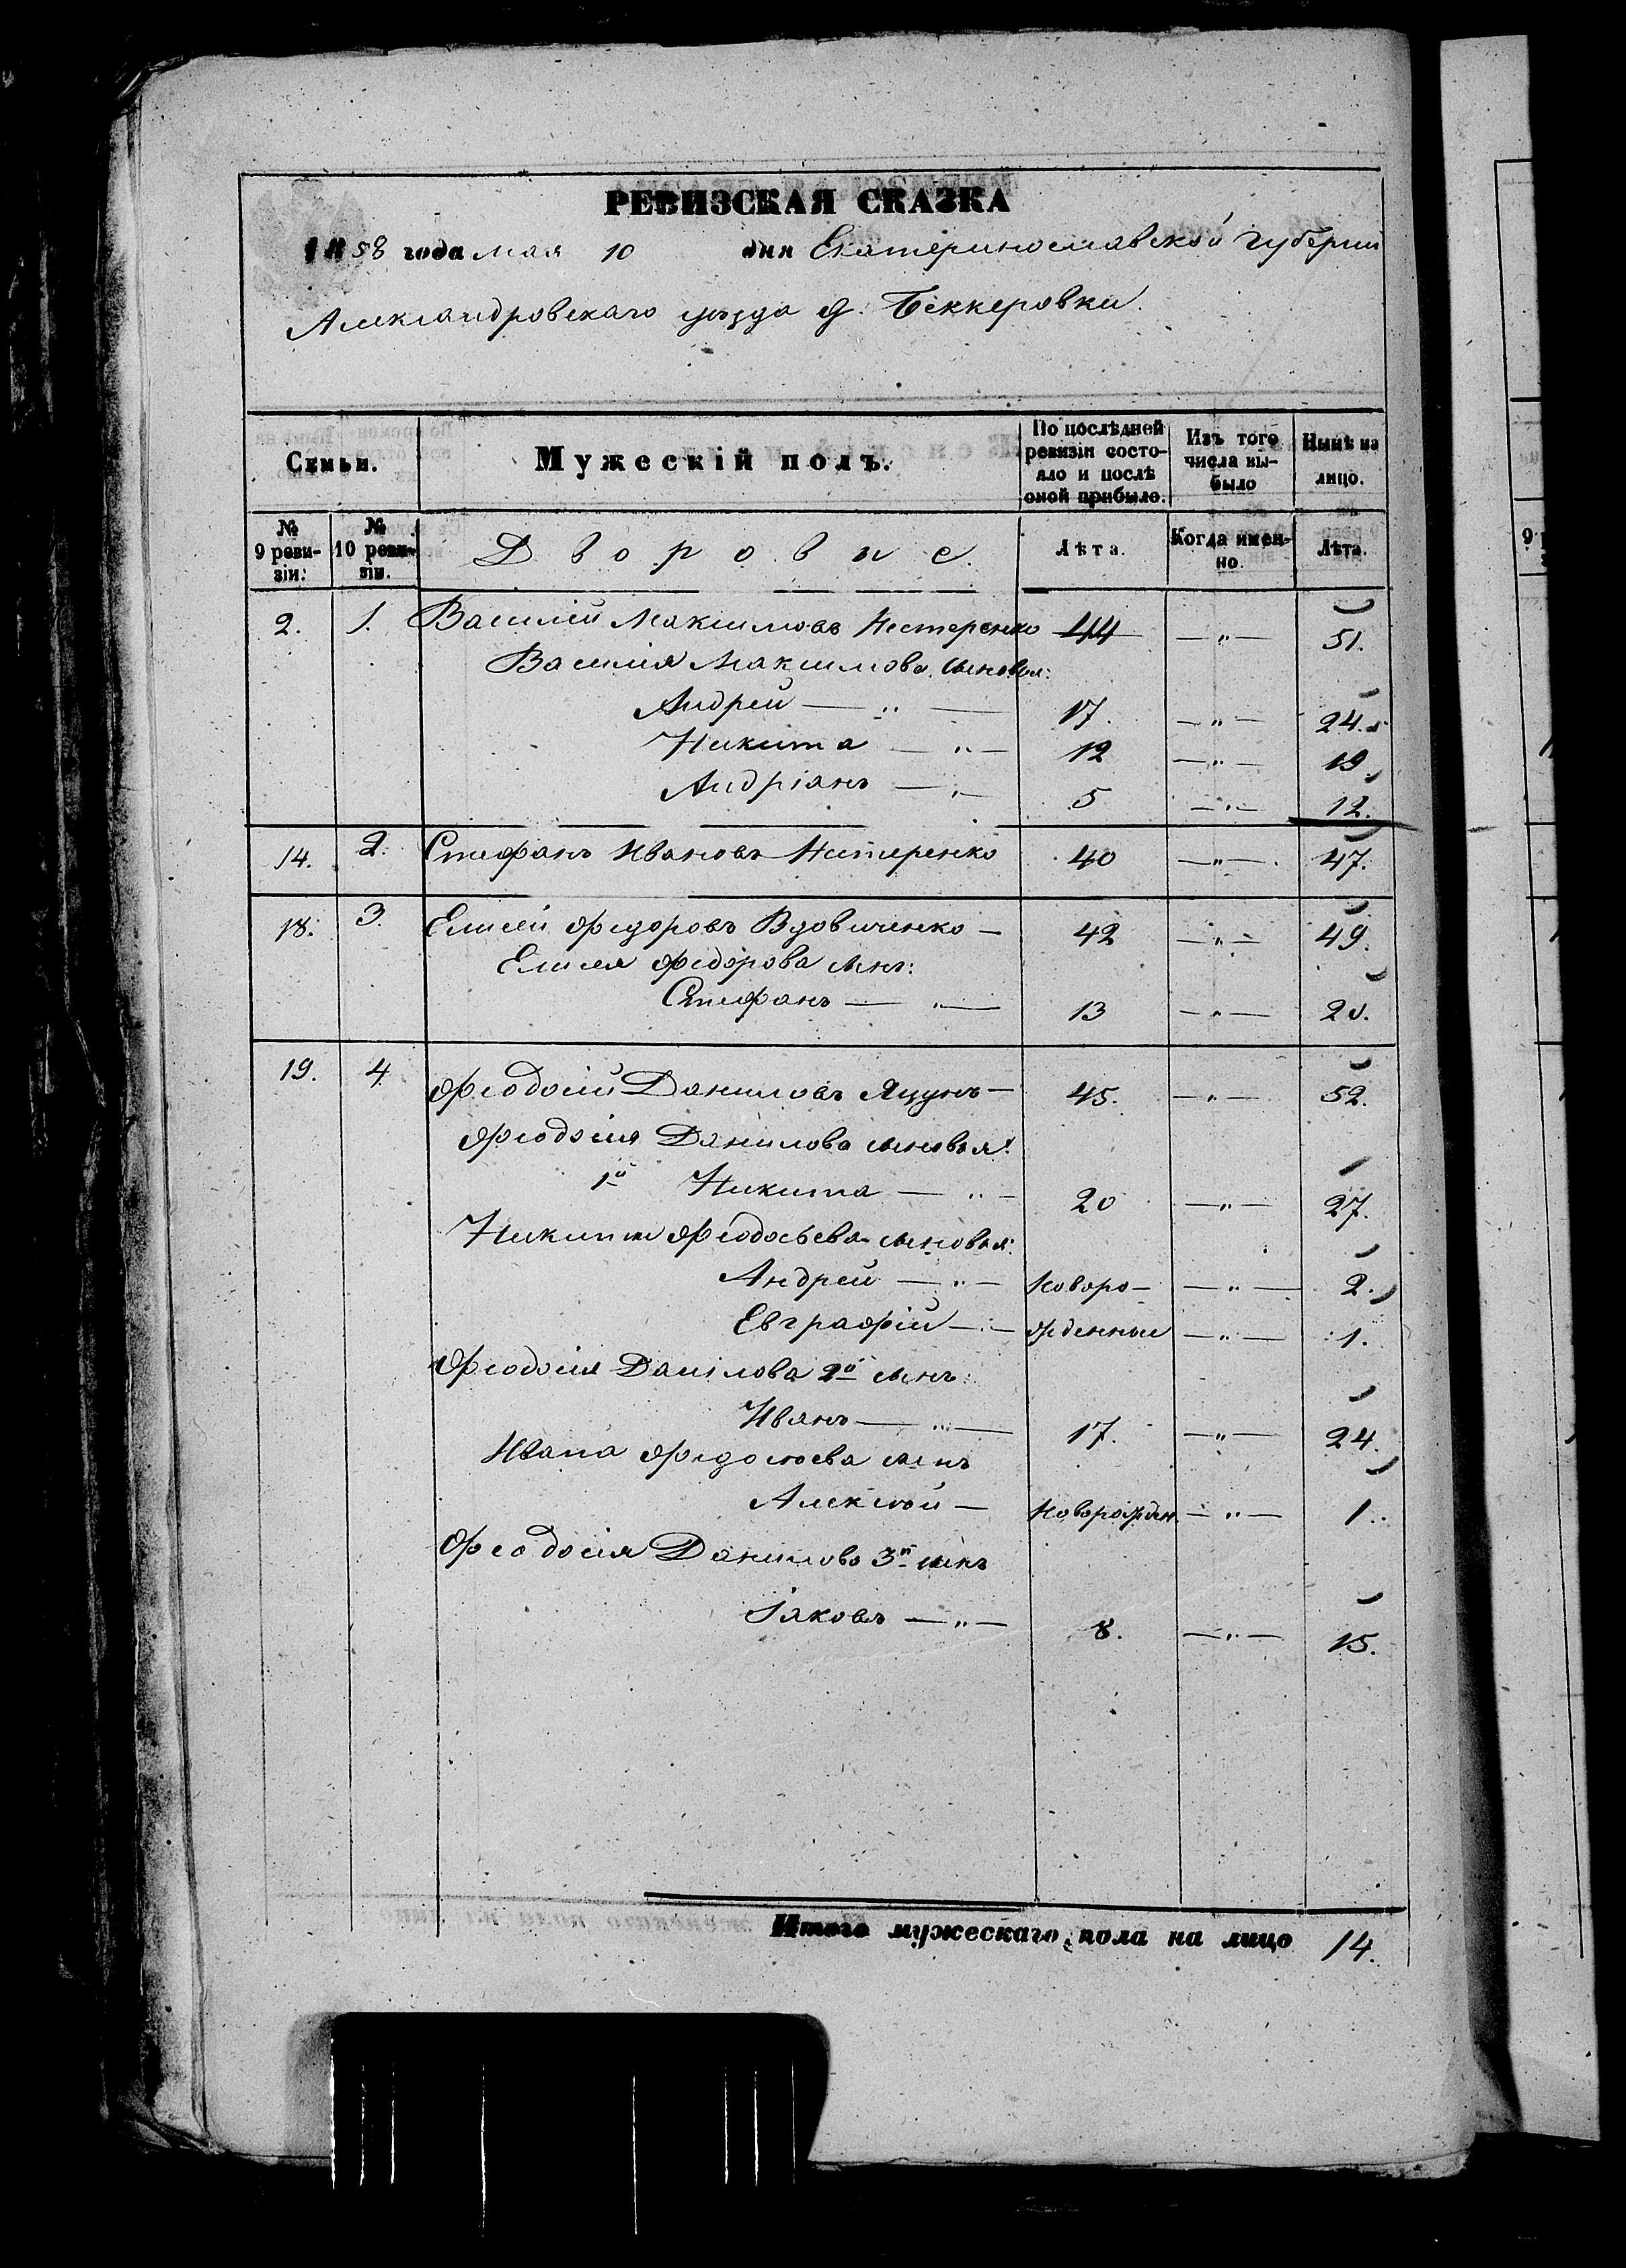 РЕВИЗСКАЯ СКАЗКА
1858 года мая 10 дня Екатеринославской губерніи
Александровскаго уѣзда д. Беккеровки.
Семьи. Мужескій полъ. По послѣдней ревизіи состояло и послѣ оной прибыло. Изъ того числа выбыло Нынѣ на лицо.
№ 9 ревизіи. № 10 ревизіи. Дворовые. Лѣта. Когда именно. Лѣта.
2. 1. Василій Максимовъ Нестеренко 44 — „ — 51.
Василія Максимова сыновья:
Андрей — „ — 17. — „ — 24.
Никита — „ — 12 — „ — 19
Андріянъ — „ — 5 — „ — 12.
14. 2. Стефанъ Ивановъ Нестеренко 40 — „ — 47.
18. 3. Елисей Федоровъ Вдовиченко — 42 — „ — 49.
Елисея Федорова сынъ:
Стефанъ — „ — 13 — „ — 20.
19. 4. Феодосій Даниловъ Яцунъ — 45. — „ — 52.
Феодосія Данилова сыновья:
1й Никита — „ — 20 — „ — 27.
Никиты Феодосьева сыновья:
Андрей — „ — Новоро- — „ — 2.
Евграфій — „ — жденные — „ — 1.
Феодосія Данилова 2й сынъ:
Иванъ — „ — 17. — „ — 24.
Ивана Федосіева сынъ
Алексѣй — Новорожден. — „ — 1.
Феодосія Данилова 3й сынъ
Іяковъ — „ — 8. — „ — 15.
Итого мужескаго пола на лицо 14.